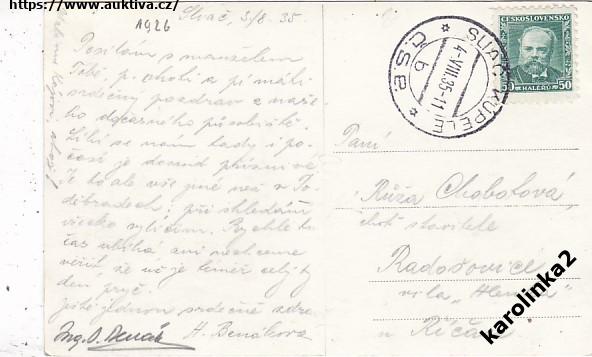 https://www.auktiva.cz/
1926
Sliač, 3/8 - 35
Posílám s manželem
Tobě, p. choti a pí máti
srdečný pozdrav z naše-
ho dočasného působiště.
Líbí se nám tady i po-
časí je dosud příznivé.
Je to ale vše jiné než v Po-
děbradech; při shledání
všecko vylíčím. Rychle to
čas ubíhá ani nechceme
věřit, že už je téměř celý tý-
den pryč.
Ještě jednou srdečně zdraví
Ing. O. Benák H. Benáková
SLIAČ KÚPELE
4.VIII.35-11
Č.S.P.
ČESKOSLOVENSKO
50 HALÉŘŮ 50
Paní
Růža Chobotová,
choť stavitele
Radošovice
vila „Helena"
u Říčan
karolinka2